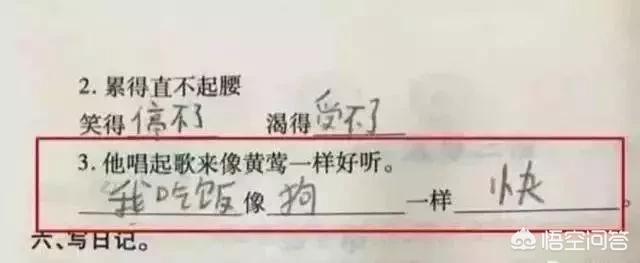 2. 累得直不起腰
笑得停不了 渴得受不了
3. 他唱起歌来像黄莺一样好听。
我吃饭像狗一样快。
六、写日记。
悟空问答